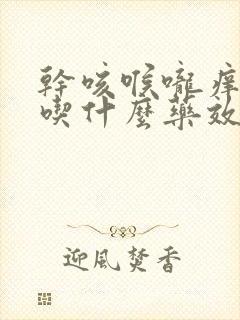 幹咳喉嚨癢
喫什麼藥效
迎風焚香